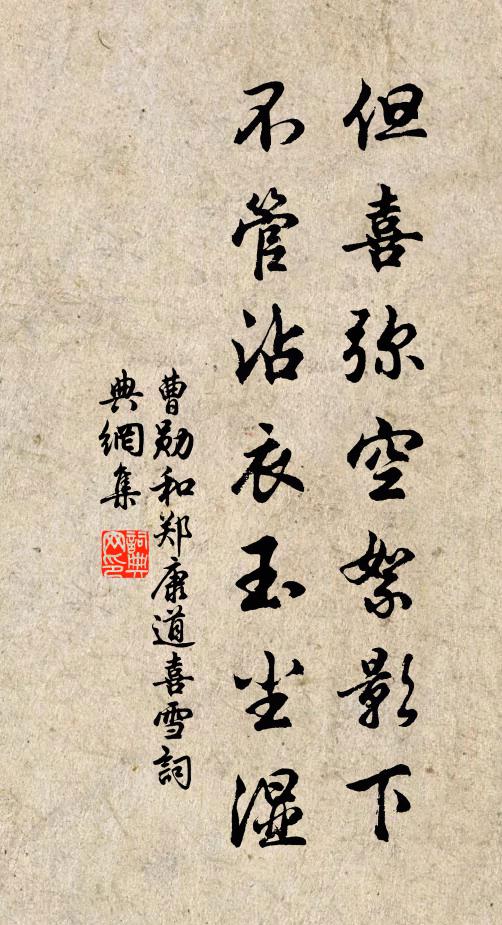 但喜弥空絮影下
不管沾衣玉尘湿
曹勋和郑康道喜雪詞
典網集
詞典网印